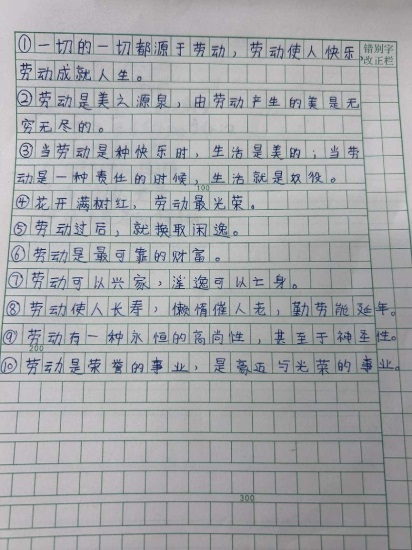 ①一切的一切都源于劳动，劳动使人快乐，
劳动成就人生。
②劳动是美之源泉，由劳动产生的美是无
穷无尽的。
③当劳动是种快乐时，生活是美的；当劳
动是一种责任的时候，生活就是奴役。
100
④花开满树红，劳动最光荣。
⑤劳动过后，就换取闲逸。
⑥劳动是最可靠的财富。
⑦劳动可以兴家，淫逸可以亡身。
⑧劳动使人长寿，懒惰催人老，勤劳能延年。
⑨劳动有一种永恒的高尚性，甚至于神圣性。
200
⑩劳动是荣誉的事业，是豪迈与光荣的事业。
300
错别字
改正栏